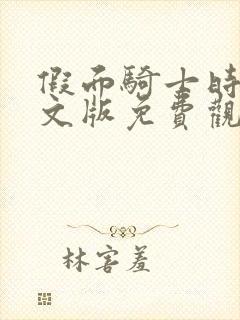 假面騎士時
文版免費觀
林害羞